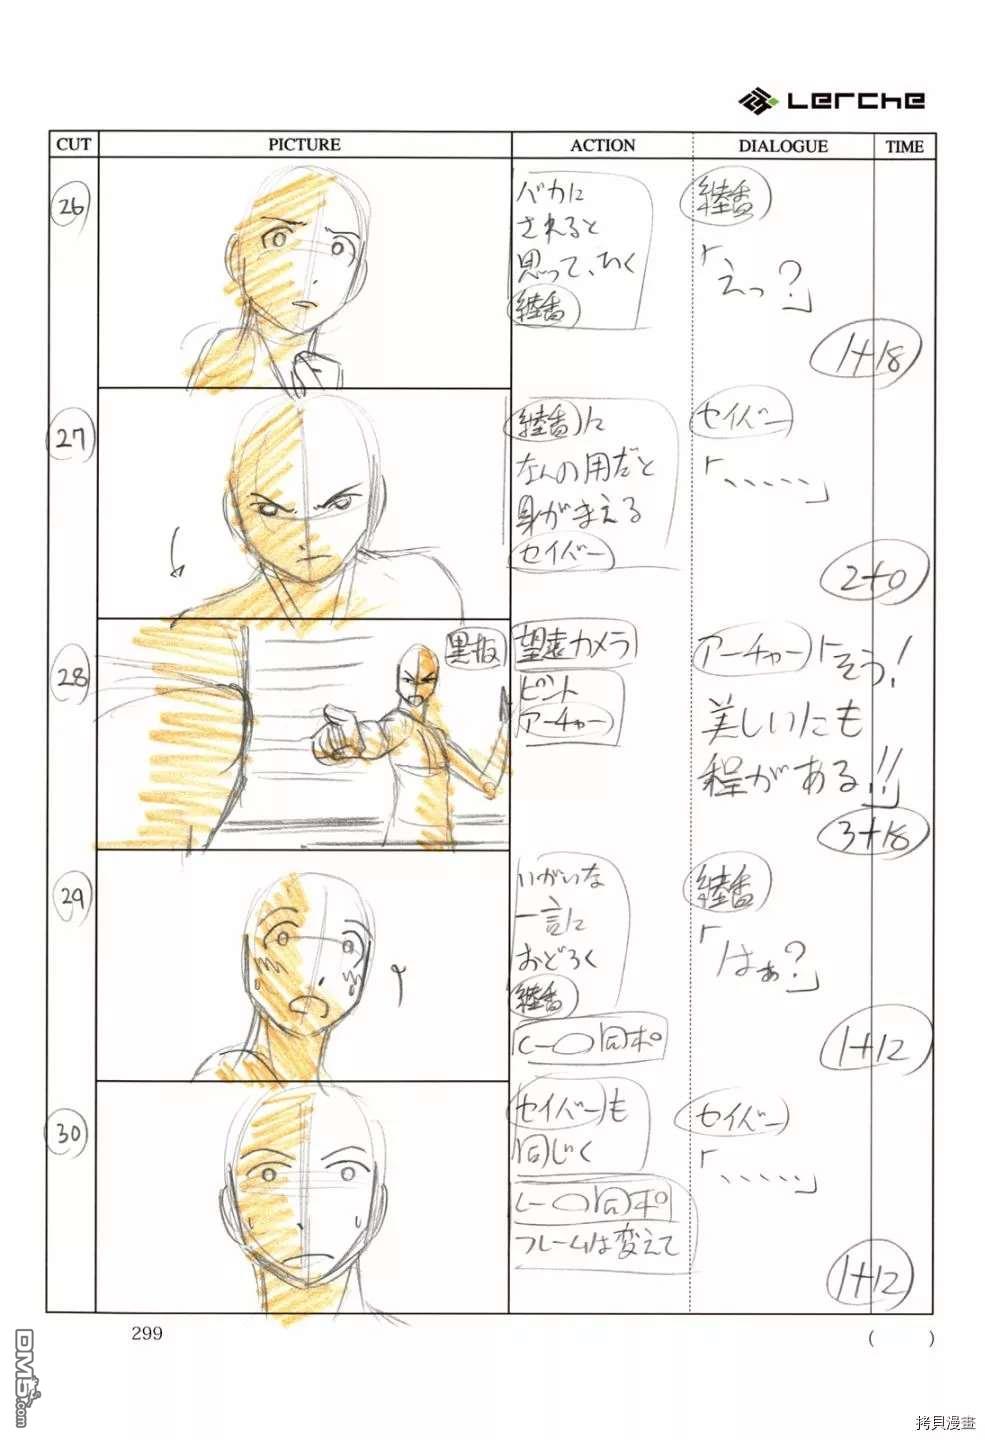 Lerche
CUT PICTURE ACTION DIALOGUE TIME
26
バカに
されると
思って、ひく
綾香
綾香
「えっ?」
1+18
27
綾香に
なんの用だと
身がまえる
セイバー
セイバー
「、、、、、」
2+0
28
黒板
望遠カメラ
ピント
アーチャー
アーチャー「そう!
美しいにも
程がある!!」
3+18
29
いがいな
一言に
おどろく
綾香
C-〇同ポ
綾香
「はぁ?」
1+12
30
セイバーも
同じく
C-〇同ポ
フレームは変えて
セイバー
「、、、、、」
1+12
299
( )
DM5.com
拷貝漫畫